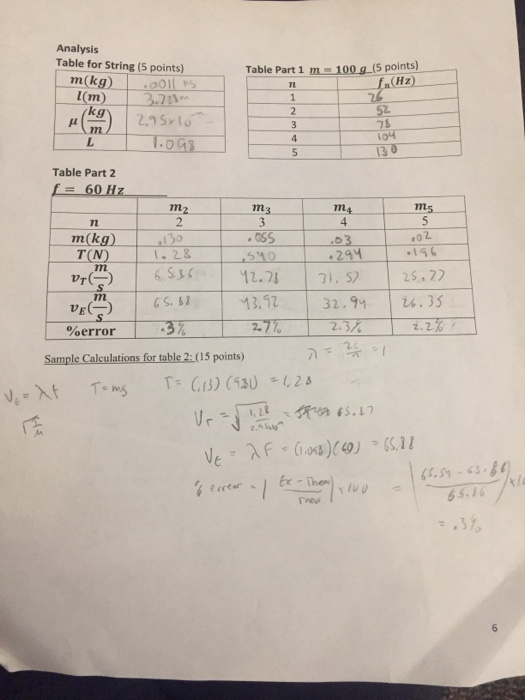 Analysis
Table for String (5 points)
m(kg) .0011 kg
l(m)
μ(kg/m) 2.95x10
L 1.098
Table Part 1 m = 100 g (5 points)
n fn(Hz)
1 26
2 52
3 78
4 104
5 130
Table Part 2
f = 60 Hz
m2 m3 m4 m5
n 2 3 4 5
m(kg) .130 .055 .03 .02
T(N) 1.28 .540 .294 .196
vT(m/s) 42.78 31.57 25.77
vE(m/s) 65.88 43.92 32.94 26.35
%error .3% 2.7% 2.3% 2.2%
Sample Calculations for table 2: (15 points)
λ = 2L/n = 1
Vt = λf T = mg T = (.13)(9.81) = 1.28
Vt = λF = (1.098)(60) = 65.88
% error = | Ex - Theo | x 100
= .3%
6